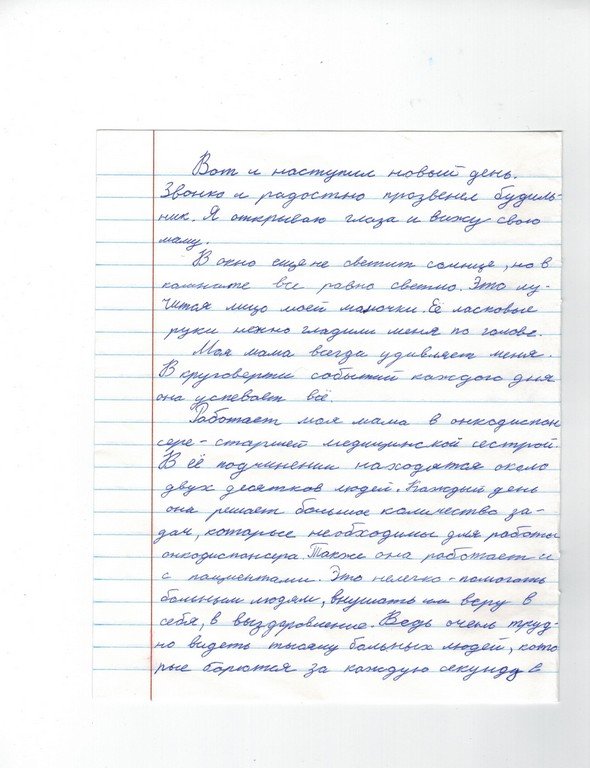 Вот и наступил новый день.
Звонко и радостно прозвенел будиль-
ник. Я открываю глаза и вижу свою
маму.
В окно ещё не светит солнце, но в
комнате все равно светло. Это лу-
чится лицо моей мамочки. Её ласковые
руки нежно гладили меня по голове.
Моя мама всегда удивляет меня.
В круговерти событий каждого дня
она успевает всё
Работает моя мама в онкодиспан
сере - старшей медицинской сестрой.
В её подчинении находятся около
двух десятков людей. Каждый день
она решает большое количество за-
дач, которые необходимы для работы
онкодиспансера. Также она работает и
с пациентами. Это нелегко - помогать
больным людям, внушать им веру в
себя, в выздоровление. Ведь очень труд-
но видеть тысячу больных людей, кото
рые борются за каждую секунду в